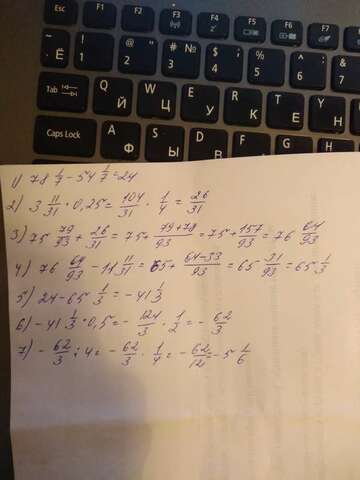 Esc F1 F2 F3 F4 F5 F6 F7
~ Ё ! 1 @ 2 " # № 3 $ 4 ; % 5 ^ 6 : & 7 ?
Tab Q Й W Ц E У R К T Е Y Н
Caps Lock A Ф S Ы D В F А G П
1) 78 1/7 - 54 1/7 = 24
2) 3 11/31 · 0,25 = 104/31 · 1/4 = 26/31
3) 75 79/93 + 26/31 = 75 + 79+78/93 = 75 + 157/93 = 76 64/93
4) 76 64/93 - 11 11/31 = 65 + 64-33/93 = 65 31/93 = 65 1/3
5) 24 - 65 1/3 = - 41 1/3
6) - 41 1/3 · 0,5 = - 124/3 · 1/2 = - 62/3
7) - 62/3 : 4 = - 62/3 · 1/4 = - 62/12 = - 5 1/6